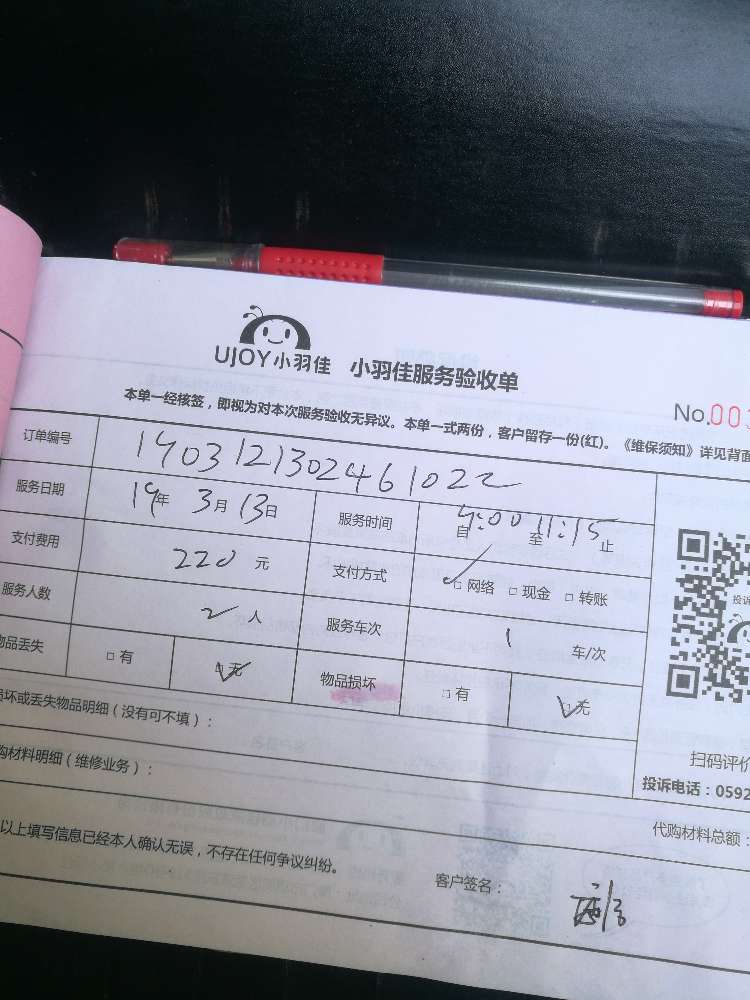 UJOY小羽佳 小羽佳服务验收单
No.003
本单一经核签，即视为对本次服务验收无异议。本单一式两份，客户留存一份(红)。《维保须知》详见背面
订单编号 1903121302461022
服务日期 19年 3月 13日 服务时间 自 9:00 至 11:15 止
支付费用 220 元 支付方式 ✓□ 网络 □ 现金 □ 转账
服务人数 2 人 服务车次 1 车/次
物品丢失 □ 有 ☑ 无 物品损坏 □ 有 ☑ 无
损坏或丢失物品明细（没有可不填）：
购材料明细（维修业务）：
扫码评价
投诉电话：0592
代购材料总额：
以上填写信息已经本人确认无误，不存在任何争议纠纷。
客户签名：
投诉